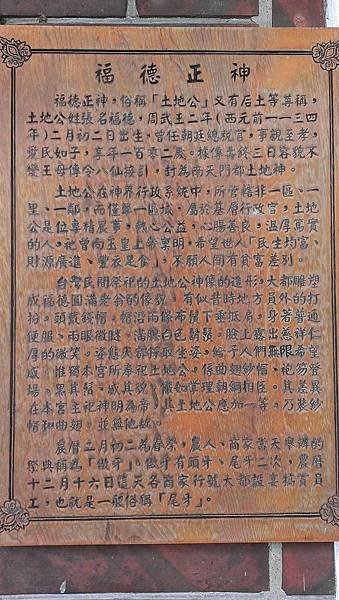 福德正神
福德正神，俗稱「土地公」又有后土等尊稱，
土地公姓張名福德，周武王二年(西元前一一三四
年)二月初二日出生，曾任朝廷總稅官，事親至孝，
愛民如子，享年一百零二歲。據傳其終三日容貌不
變王母傳令八仙接引，封為南天門都土地神。
土地公在神界行政系統中，所管轄非一區、一
里、一鄰，而僅單一區域，屬於基層行政官，土地
公是位專精農事，熱心公益，心腸善良，溫厚篤實
的人。祂曾向玉皇上帝稟明，希望世人「民生均富、
財源廣進、豐衣足食」，不願人間有貧富差別。
台灣民間祭祀的土地公神像的造形，大都雕塑
成福德圓滿老翁的像貌，有似昔時地方員外的打
扮。頭戴錢帽。帽沿兩條布
便服、雨眼微瞇。滿腮白色鬍鬚。臉上露出慈祥仁
厚的微笑。姿態大都採取坐姿，給予人們無限希望
感。惟獨本宮所奉祀土地
在本宮主祀神明為帝，其土地公應加一等。乃裝紗
帽和曲翅。並無他故。
農曆二月初二為春祭，農人、商家當天舉辦的
祭典稱為「做牙」。做牙有頭牙、尾牙二次，農曆
十二月十六日這天各商家行號大都設宴犒賞員
工，也就是一般俗稱「尾牙」。